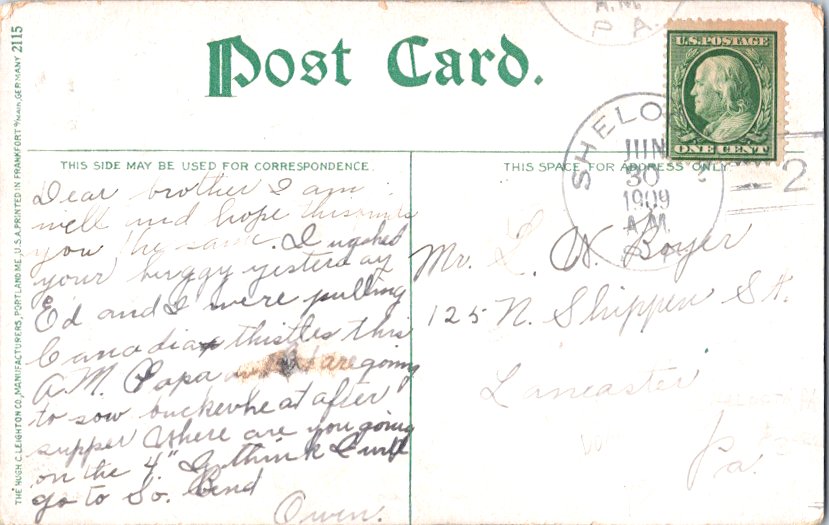 A.M.
P A.
Post Card.
U.S. POSTAGE
ONE CENT
SHELO
JUN
30
1909
A.M.
2
THIS SIDE MAY BE USED FOR CORRESPONDENCE.
THIS SPACE FOR ADDRESS ONLY
THE HUGH C. LEIGHTON CO., MANUFACTURERS, PORTLAND, ME., U.S.A. PRINTED IN FRANKFORT a/MAIN, GERMANY 2115
Dear brother I am
well and hope this
you the same. I washed
your buggy yesterday
Ed and I were pulling
Canadia thistles this
A.M. Papa are going
to sow buckwheat after
supper Where are you going
on the 4." I think I will
go to So. Bend
Owen.
Mr. L. N. Boyer
125 N. Shippen St.
Lancaster
Pa.